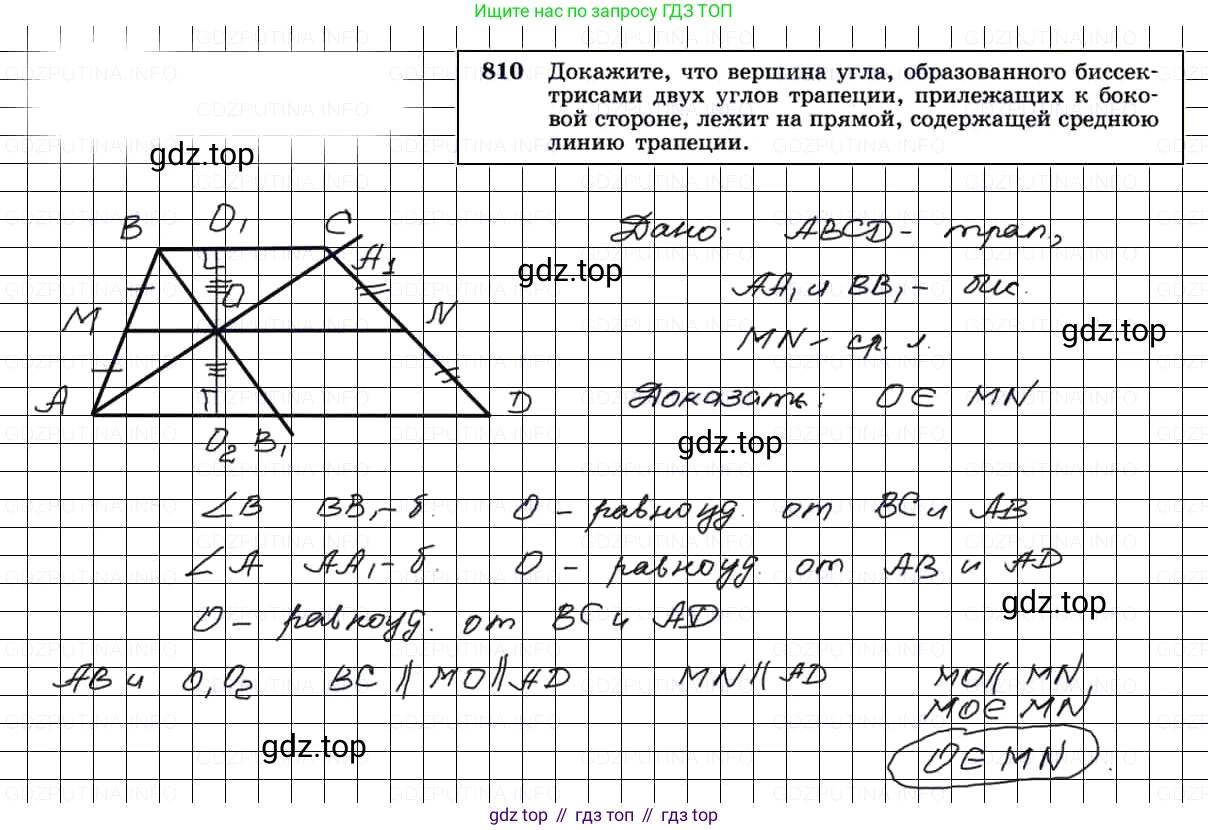 Ищите нас по запросу ГДЗ ТОП
810 Докажите, что вершина угла, образованного биссек-
трисами двух углов трапеции, прилежащих к боко-
вой стороне, лежит на прямой, содержащей среднюю
линию трапеции.
gdz.top
B O₁ C
A₁
O
M N
A D
O₂ B₁
Дано: ABCD - трап.,
gdz.top
AA₁ и BB₁ - бис.
gdz.top
MN - ср. л.
Доказать: O ∈ MN
gdz.top
∠B BB₁ - б. O - равноуд. от BC и AB
∠A AA₁ - б. O - равноуд. от AB и AD
gdz.top
O - равноуд. от BC и AD
AB и O₁O₂ BC || MO || AD MN || AD MO || MN,
MO ∈ MN
gdz.top
O ∈ MN.
gdz.top // гдз топ // gdz.top